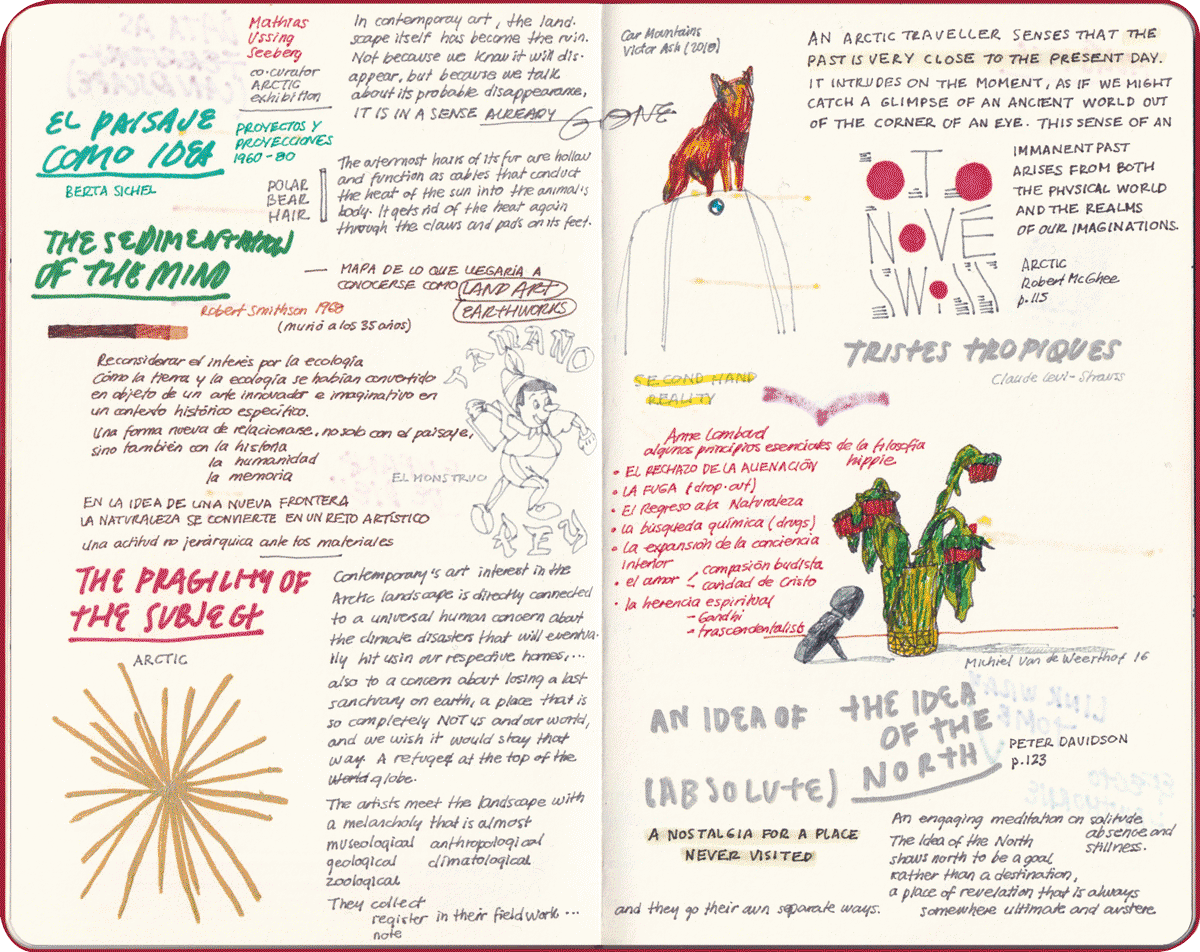 Mathias
Ussing
Seeberg
co-curator
ARCTIC
exhibition
In contemporay art, the land-
scape itself has become the ruin.
Not because we know it will dis-
appear, but because we talk
about its probable disappearance,
IT IS IN A SENSE ALREADY GONE
EL PAISAJE
COMO IDEA
BERTA SICHEL
PROYECTOS Y
PROYECCIONES
1960-80
POLAR
BEAR
HAIR
The outermost hairs of its fur are hollow
and function as cables that conduct
the heat of the sun into the animal's
body. It gets rid of the heat again
through the claws and pads on its feet.
THE SEDIMENTATION
OF THE MIND
Robert Smithson 1968
(murió a los 35 años)
— MAPA DE LO QUE LLEGARIA A
CONOCERSE COMO LAND ART
EARTHWORKS
Reconsiderar el interés por la ecología
Cómo la tierra y la ecología se habían convertido
en objeto de un arte innovador e imaginativo en
un contexto histórico específico.
Una forma nueva de relacionarse, no solo con el paisaje,
sino también con la historia
la humanidad
la memoria
TAMAÑO
REY
EL MONSTRUO
EN LA IDEA DE UNA NUEVA FRONTERA
LA NATURALEZA SE CONVIERTE EN UN RETO ARTÍSTICO
Una actitud no jerárquica ante los materiales
THE FRAGILITY OF
THE SUBJECT
ARCTIC
Contemporary's art interest in the
Arctic landscape is directly connected
to a universal human concern about
the climate disasters that will eventua-
lly hit us in our respective homes,...
also to a concern about losing a last
sanctuary on earth, a place that is
so completely NOT us and our world,
and we wish it would stay that
way. A refuge at the top of the
world globe.
The artists meet the landscape with
a melancholy that is almost
museological anthropological
geological climatological
zoological
They collect
register in their field work ...
note
Car Mountains
Victor Ash (2010)
AN ARCTIC TRAVELLER SENSES THAT THE
PAST IS VERY CLOSE TO THE PRESENT DAY.
IT INTRUDES ON THE MOMENT, AS IF WE MIGHT
CATCH A GLIMPSE OF AN ANCIENT WORLD OUT
OF THE CORNER OF AN EYE. THIS SENSE OF AN
IMMANENT PAST
ARISES FROM BOTH
THE PHYSICAL WORLD
AND THE REALMS
OF OUR IMAGINATIONS.
OTO
NOVE
SWISS
ARCTIC
Robert McGhee
p.115
TRISTES TROPIQUES
Claude Levi-Strauss
SECOND HAND
REALITY
Anne Lombard
algunos principios esenciales de la filosofía
hippie
• EL RECHAZO DE LA ALIENACIÓN
• LA FUGA (drop-out)
• El Regreso a la Naturaleza
• la búsqueda química (drugs)
• la expansión de la conciencia
interior
• el amor - compasión budista
- caridad de Cristo
• la herencia espiritual
- Gandhi
- trascendentalists
Michiel van de Weerthof 16
AN IDEA OF
(ABSOLUTE)
THE IDEA
OF THE
NORTH
PETER DAVIDSON
p.123
A NOSTALGIA FOR A PLACE
NEVER VISITED
An engaging meditation on solitude
absence and
stillness.
The Idea of the North
shows north to be a goal
rather than a destination,
a place of revelation that is always
somewhere ultimate and austere
and they go their own separate ways.